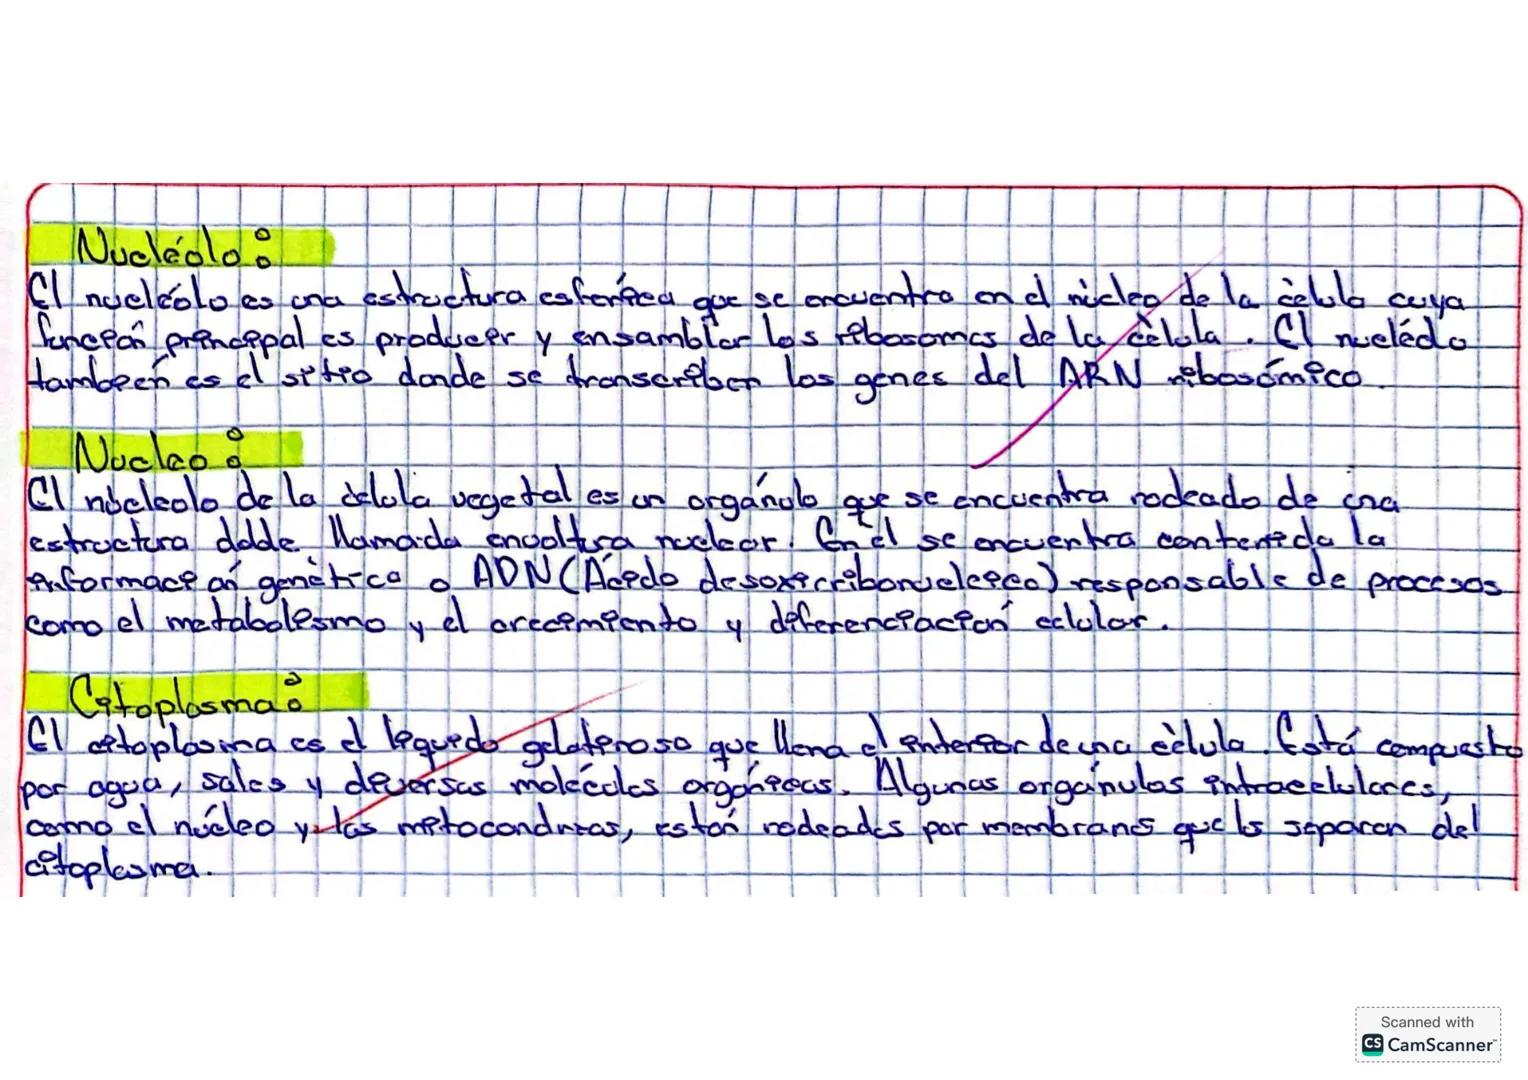 Nucléolo:
El nucléolo es una estructura esférica que se encuentra en el núcleo de la célula cuya
función principal es producir y ensamblar los ribosomas de la célula. El nucléolo
también es el sitio donde se transcriben los genes del ARN ribosómico.
Nucleo:
El núcleolo de la célula vegetal es un orgánolo que se encuentra rodeado de una
estructura doble llamada envoltura nuclear. En él se encuentra contenida la
información genética o ADN (Ácido desoxirribonucleico) responsable de procesos
como el metabolismo y el crecimiento y diferenciación celular.
Citoplasma:
El citoplasma es el líquido gelatinoso que llena el interior de una célula. Está compuesto
por agua, sales y diversas moléculas orgánicas. Algunas orgánulos intracelulares,
como el núcleo y las mitocondrias, están rodeados por membranas que los separan del
citoplasma.
Scanned with
CS CamScanner